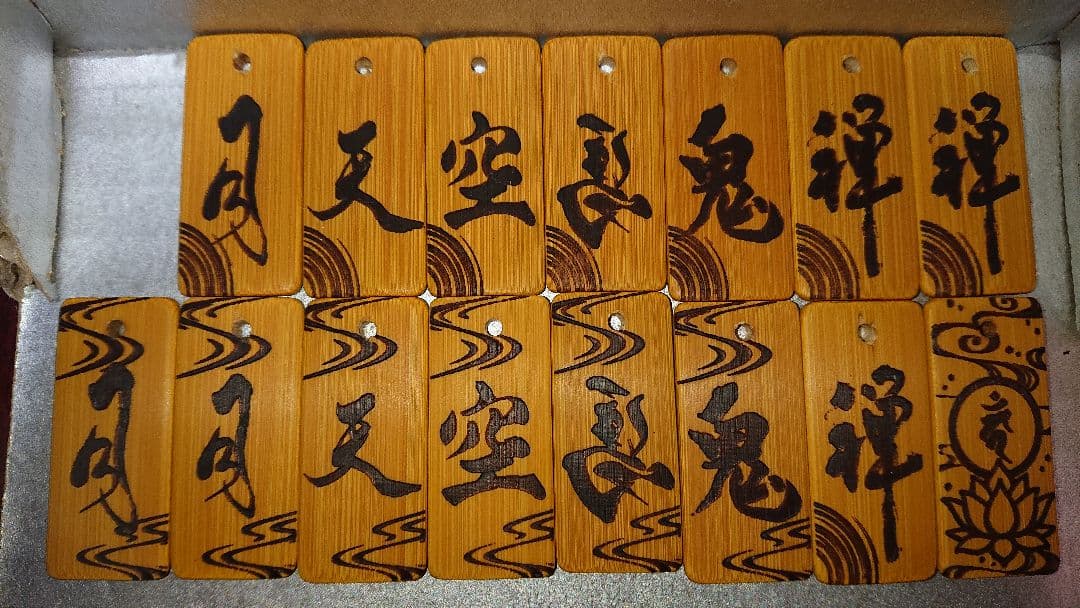 月 天 空 長 鬼 禅 禅
月 月 天 空 長 鬼 禅